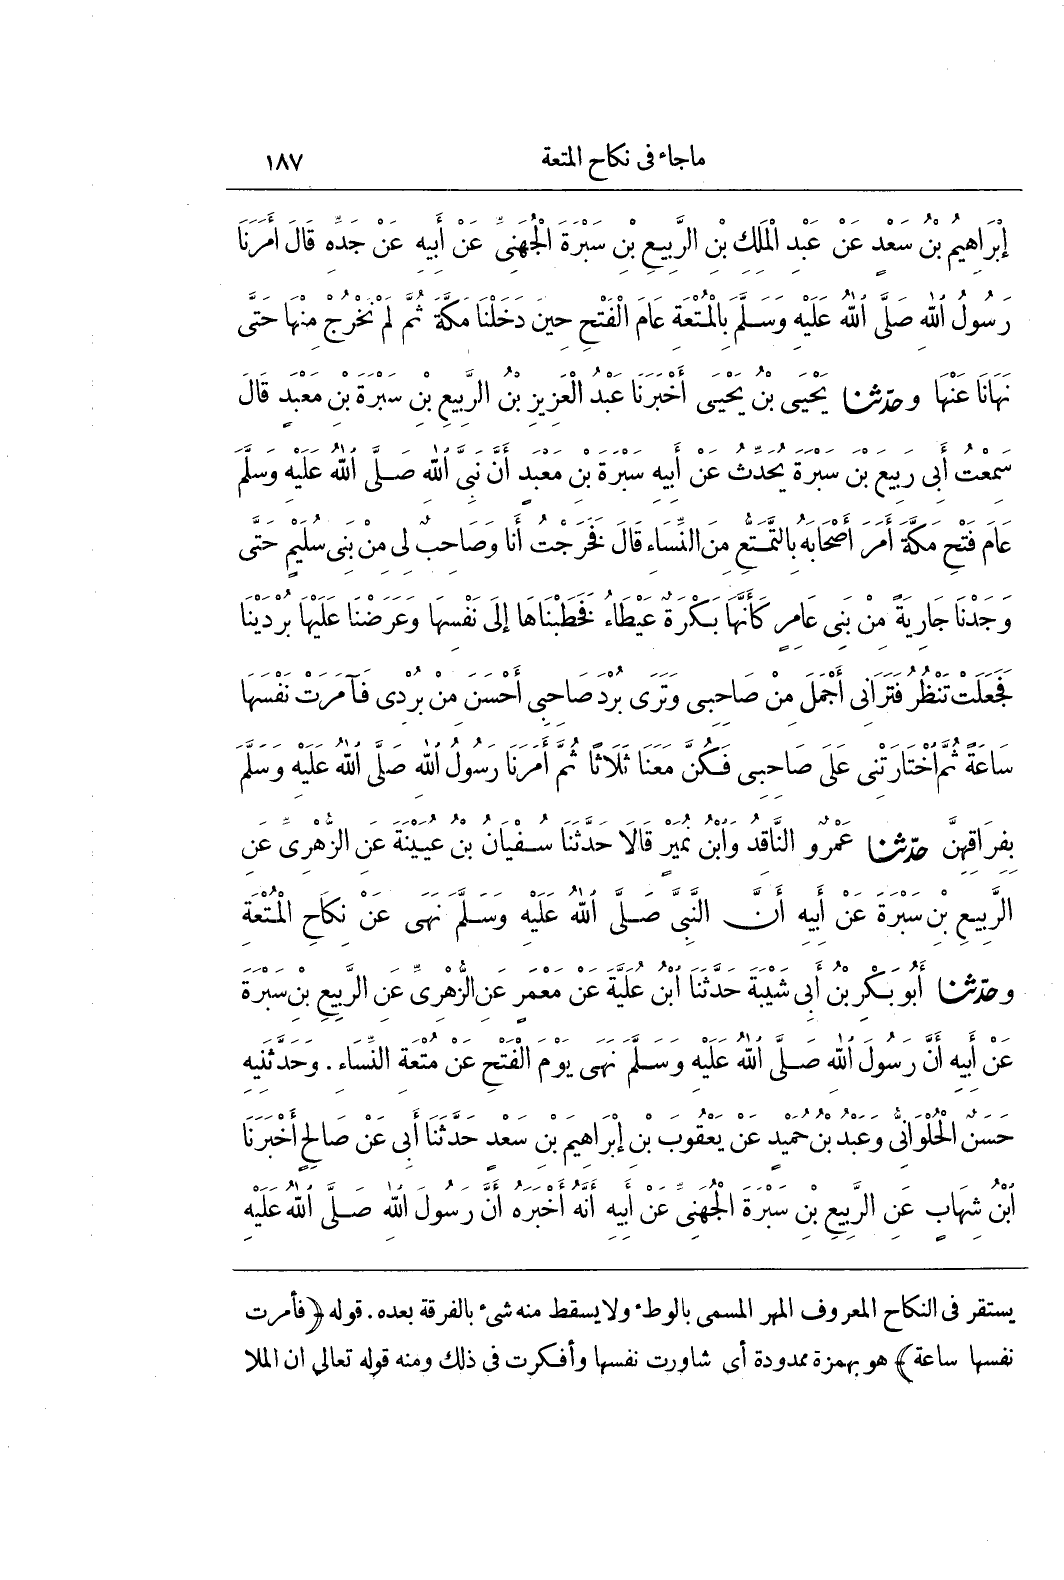 ماجاء فى نكاح المتعة ١٨٧
إِبْرَاهِيمُ بْنُ سَعْدٍ عَنْ عَبْدِ الْمَلِكِ بْنِ الرَّبِيعِ بْنِ سَبْرَةَ الْجُهَنِيِّ عَنْ أَبِيهِ عَنْ جَدِّهِ قَالَ أَمَرَنَا
رَسُولُ اللهِ صَلَّى اللهُ عَلَيْهِ وَسَلَّمَ بِالْمُتْعَةِ عَامَ الْفَتْحِ حِينَ دَخَلْنَا مَكَّةَ ثُمَّ لَمْ نَخْرُجْ مِنْهَا حَتَّى
نَهَانَا عَنْهَا وحدّثنا يَحْيَى بْنُ يَحْيَى أَخْبَرَنَا عَبْدُ الْعَزِيزِ بْنُ الرَّبِيعِ بْنِ سَبْرَةَ بْنِ مَعْبَدٍ قَالَ
سَمِعْتُ أَبِى رَبِيعَ بْنَ سَبْرَةَ يُحَدِّثُ عَنْ أَبِيهِ سَبْرَةَ بْنِ مَعْبَدٍ أَنَّ نَبِىَّ اللهِ صَلَّى اللهُ عَلَيْهِ وَسَلَّمَ
عَامَ فَتْحِ مَكَّةَ أَمَرَ أَصْحَابَهُ بِالتَّمَتُّعِ مِنَ النِّسَاءِ قَالَ فَخَرَجْتُ أَنَا وَصَاحِبٌ لِى مِنْ بَنِى سُلَيْمٍ حَتَّى
وَجَدْنَا جَارِيَةً مِنْ بَنِى عَامِرٍ كَأَنَّهَا بَكْرَةٌ عَيْطَاءُ فَخَطَبْنَاهَا إِلَى نَفْسِهَا وَعَرَضْنَا عَلَيْهَا بُرْدَيْنَا
فَجَعَلَتْ تَنْظُرُ فَتَرَانِى أَجْمَلَ مِنْ صَاحِبِى وَتَرَى بُرْدَ صَاحِبِى أَحْسَنَ مِنْ بُرْدِى فَآمَرَتْ نَفْسَهَا
سَاعَةً ثُمَّ اخْتَارَتْنِى عَلَى صَاحِبِى فَكُنَّ مَعَنَا ثَلَاثًا ثُمَّ أَمَرَنَا رَسُولُ اللهِ صَلَّى اللهُ عَلَيْهِ وَسَلَّمَ
بِفِرَاقِهِنَّ حدّثنا عَمْرٌو النَّاقِدُ وَابْنُ نُمَيْرٍ قَالَا حَدَّثَنَا سُفْيَانُ بْنُ عُيَيْنَةَ عَنِ الزُّهْرِىِّ عَنِ
الرَّبِيعِ بْنِ سَبْرَةَ عَنْ أَبِيهِ أَنَّ النَّبِىَّ صَلَّى اللهُ عَلَيْهِ وَسَلَّمَ نَهَى عَنْ نِكَاحِ الْمُتْعَةِ
وحدّثنا أَبُو بَكْرِ بْنُ أَبِى شَيْبَةَ حَدَّثَنَا ابْنُ عُلَيَّةَ عَنْ مَعْمَرٍ عَنِ الزُّهْرِىِّ عَنِ الرَّبِيعِ بْنِ سَبْرَةَ
عَنْ أَبِيهِ أَنَّ رَسُولَ اللهِ صَلَّى اللهُ عَلَيْهِ وَسَلَّمَ نَهَى يَوْمَ الْفَتْحِ عَنْ مُتْعَةِ النِّسَاءِ . وَحَدَّثَنِيهِ
حَسَنٌ الْحُلْوَانِىُّ وَعَبْدُ بْنُ حُمَيْدٍ عَنْ يَعْقُوبَ بْنِ إِبْرَاهِيمَ بْنِ سَعْدٍ حَدَّثَنَا أَبِى عَنْ صَالِحٍ أَخْبَرَنَا
ابْنُ شِهَابٍ عَنِ الرَّبِيعِ بْنِ سَبْرَةَ الْجُهَنِىِّ عَنْ أَبِيهِ أَنَّهُ أَخْبَرَهُ أَنَّ رَسُولَ اللهِ صَلَّى اللهُ عَلَيْهِ
يستقر فى النكاح المعروف المهر المسمى بالوطء ولا يسقط منه شىء بالفرقة بعده. قوله ﴿فأمرت
نفسها ساعة﴾ هو بهمزة ممدودة أى شاورت نفسها وأفكرت فى ذلك ومنه قوله تعالى ان الملا